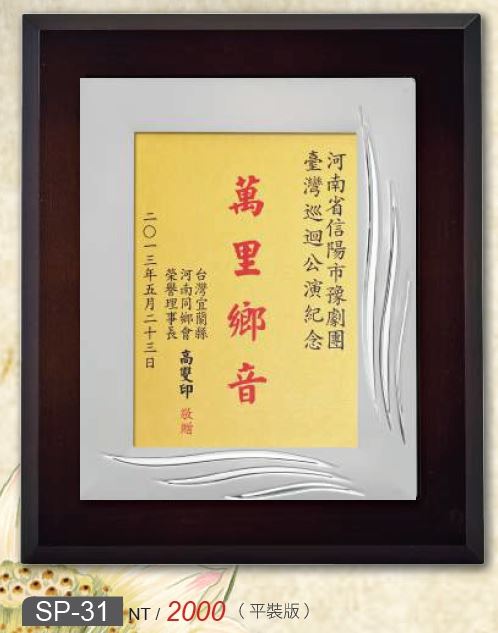 河南省信陽市豫劇團
臺灣巡迴公演紀念
萬里鄉音
台灣宜蘭縣
河南同鄉會
榮譽理事長
高雙印 敬贈
二〇一三年五月二十三日
SP-31 NT / 2000（平裝版）